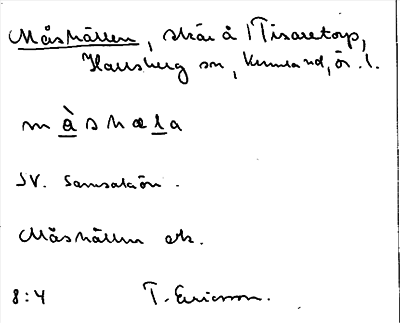 Måshällen, skär å Tisaretorp,
Hallsberg sn, Kumla hd, ör. l.
màshæla
SV. Samsalaön.
Måshällen ek.
8:4 T. Ericsson.